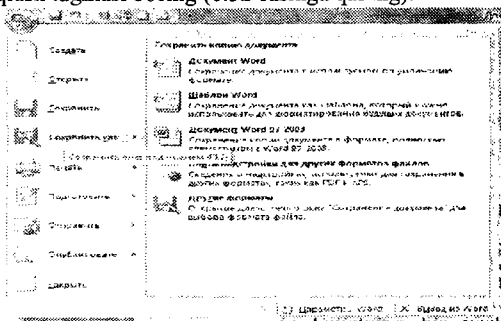 Создать
Открыть
Сохранить
Сохранить как
Печать
Подготовить
Отправить
Опубликовать
Закрыть
Сохранить копию документа
Документ Word
Сохранение документа с использованием по умолчанию
формата.
Шаблон Word
Сохранение документа как шаблона, который можно
использовать для форматирования будущих документов.
Документ Word 97-2003
Сохранение копии документа в формате,
совместимом с Word 97-2003.
надстройки для других форматов файлов
Сведения о надстройках, используемых для сохранения в
других форматах, таких как PDF и XPS.
Другие форматы
Открытие диалогового окна "Сохранение документа" для
выбора формата файла.
Параметры Word Выход из Word